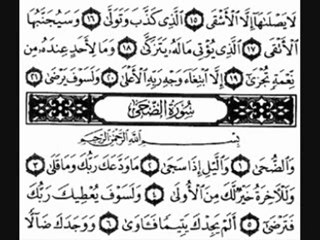 لَا يَصْلَىٰهَآ إِلَّا ٱلْأَشْقَى ١٥ ٱلَّذِى كَذَّبَ وَتَوَلَّىٰ ١٦ وَسَيُجَنَّبُهَا
ٱلْأَتْقَى ١٧ ٱلَّذِى يُؤْتِى مَالَهُۥ يَتَزَكَّىٰ ١٨ وَمَا لِأَحَدٍ عِندَهُۥ مِن
نِّعْمَةٍ تُجْزَىٰٓ ١٩ إِلَّا ٱبْتِغَآءَ وَجْهِ رَبِّهِ ٱلْأَعْلَىٰ ٢٠ وَلَسَوْفَ يَرْضَىٰ ٢١
سُورَةُ الضُّحَىٰ
بِسْمِ ٱللَّهِ ٱلرَّحْمَٰنِ ٱلرَّحِيمِ
وَٱلضُّحَىٰ ١ وَٱلَّيْلِ إِذَا سَجَىٰ ٢ مَا وَدَّعَكَ رَبُّكَ وَمَا قَلَىٰ ٣
وَلَلْءَاخِرَةُ خَيْرٌ لَّكَ مِنَ ٱلْأُولَىٰ ٤ وَلَسَوْفَ يُعْطِيكَ رَبُّكَ
فَتَرْضَىٰٓ ٥ أَلَمْ يَجِدْكَ يَتِيمًا فَـَٔاوَىٰ ٦ وَوَجَدَكَ ضَآلًّا